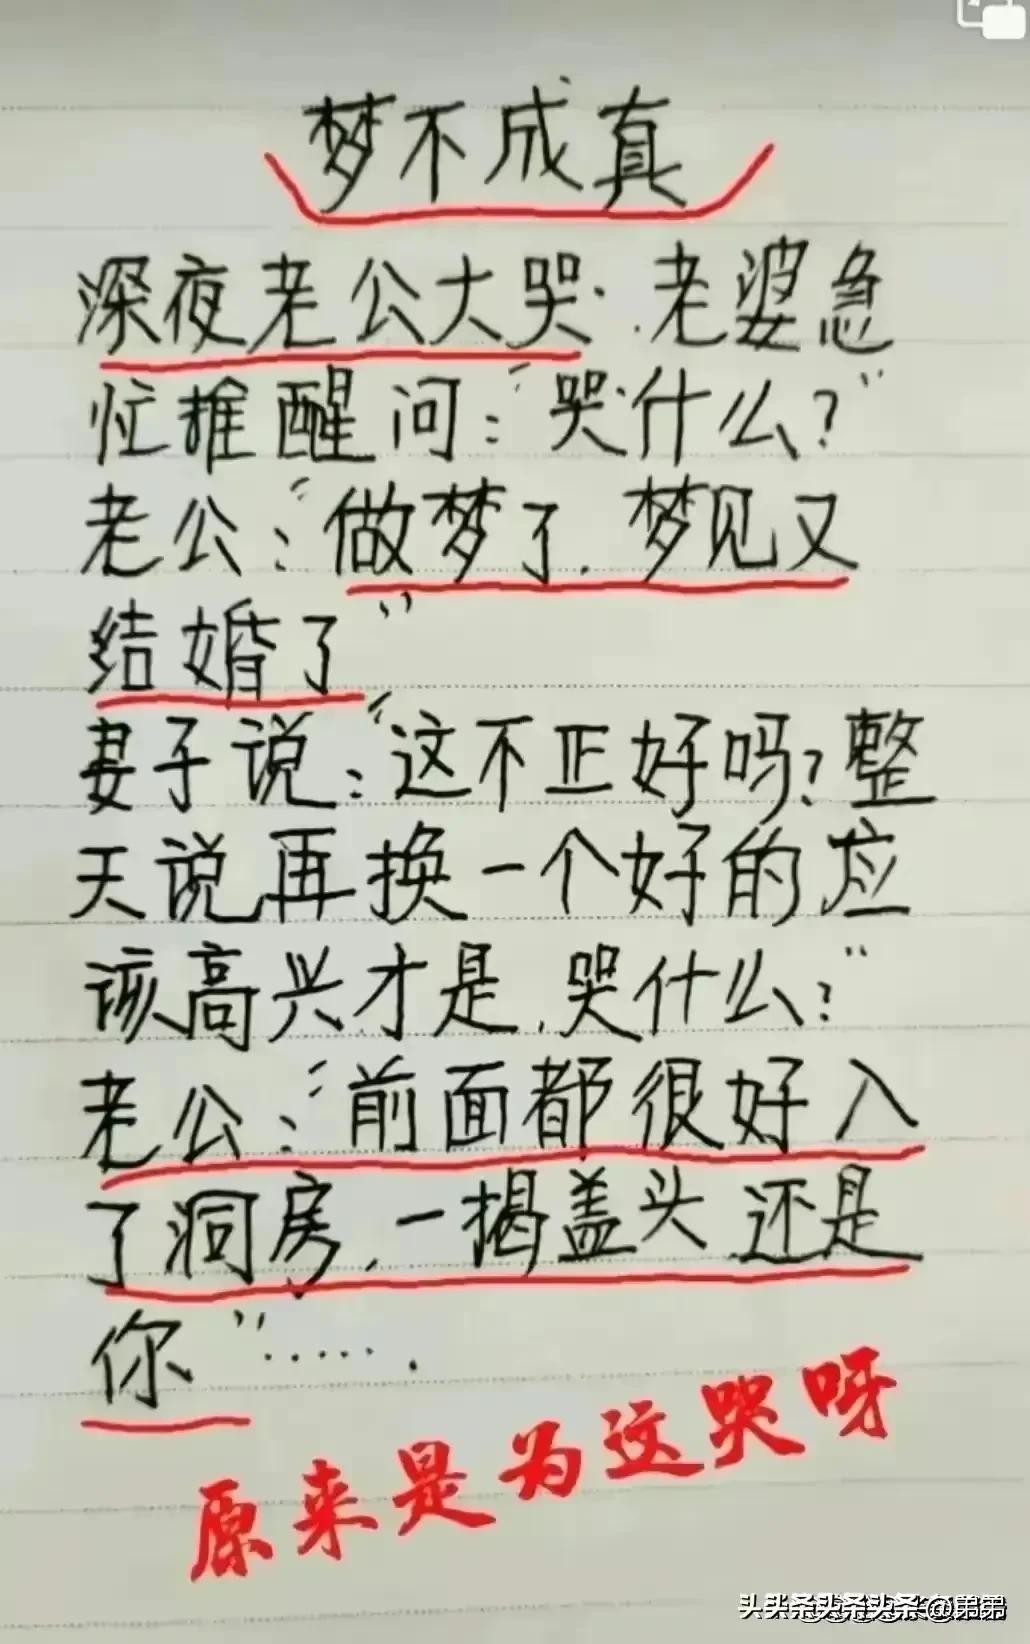 梦不成真
深夜老公大哭.老婆急
忙推醒问:“哭什么?”
老公:“做梦了.梦见又
结婚了”
妻子说:“这不正好吗?整
天说再换一个好的应
该高兴才是.哭什么?”
老公:“前面都很好入
了洞房.一揭盖头还是
你”......
原来是为这哭呀
@弟弟